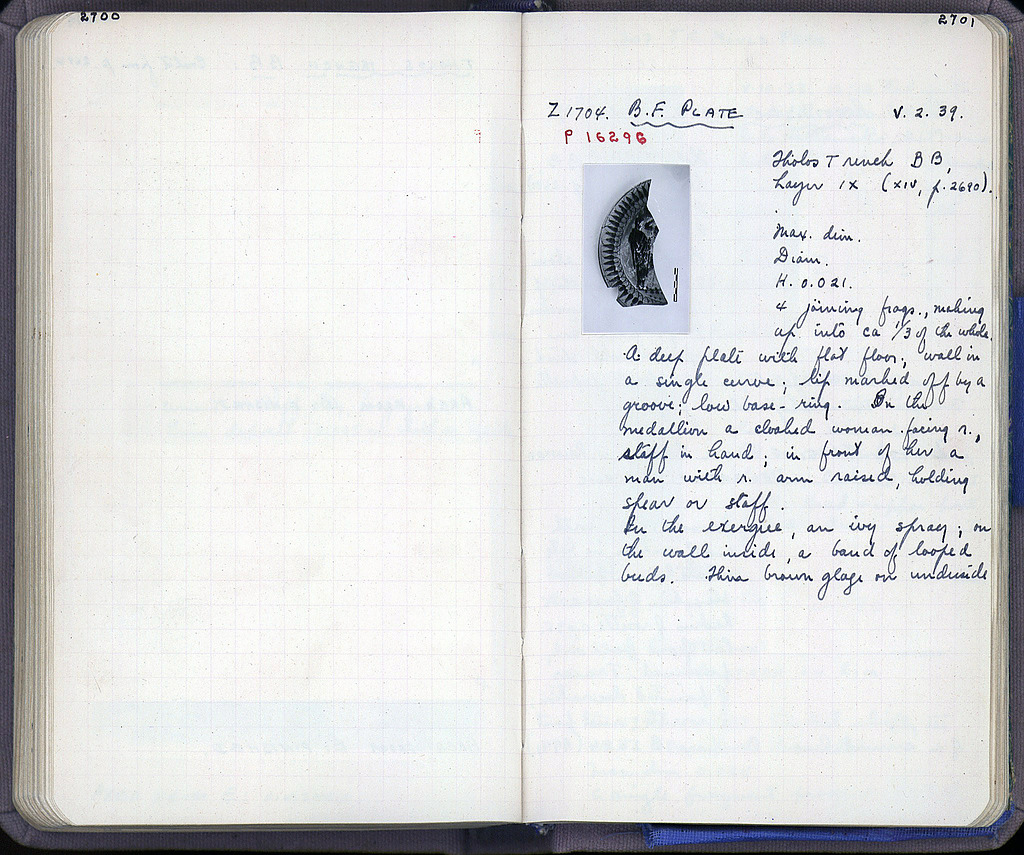 2700
2701
Z 1704. B.F. PLATE V. 2. 39.
P 16296
Tholos Trench BB,
Layer IX (XIV, p. 2690).
Max. dim.
Diam.
H. 0.021.
4 joining frags., making
up into ca 1/3 of the whole.
A deep plate with flat floor; wall in
a single curve; lip marked off by a
groove; low base-ring. In the
medallion a cloaked woman facing r.,
staff in hand; in front of her a
man with r. arm raised, holding
spear or staff.
In the exergue, an ivy spray; on
the wall inside, a band of looped
buds. Thin brown glaze on underside